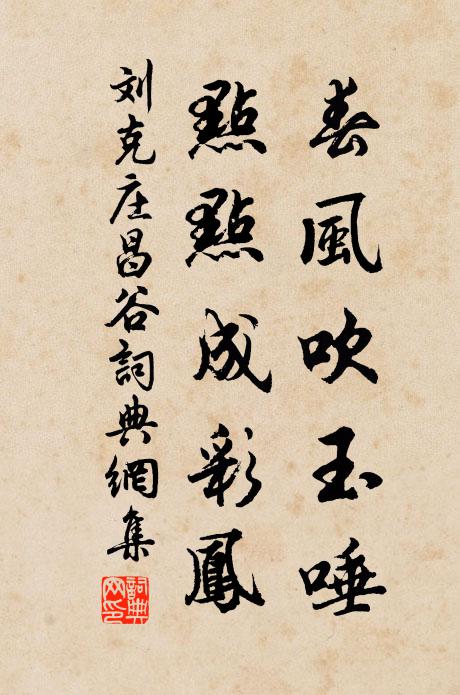 春風吹玉唾
點點成彩鳳
刘克庄昌谷詞典網集
詞典